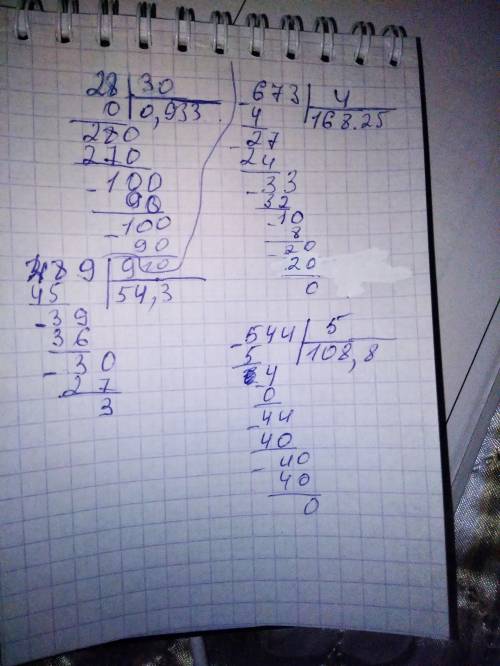 28 | 30
0 | 0,933
280
270
-100
90
-100
90
10
489 | 9
45 | 54,3
-39
36
-30
27
3
-673 | 4
4 | 168.25
-27
24
-33
32
-10
8
-20
20
0
-544 | 5
5 | 108,8
-4
0
-44
40
-40
40
0